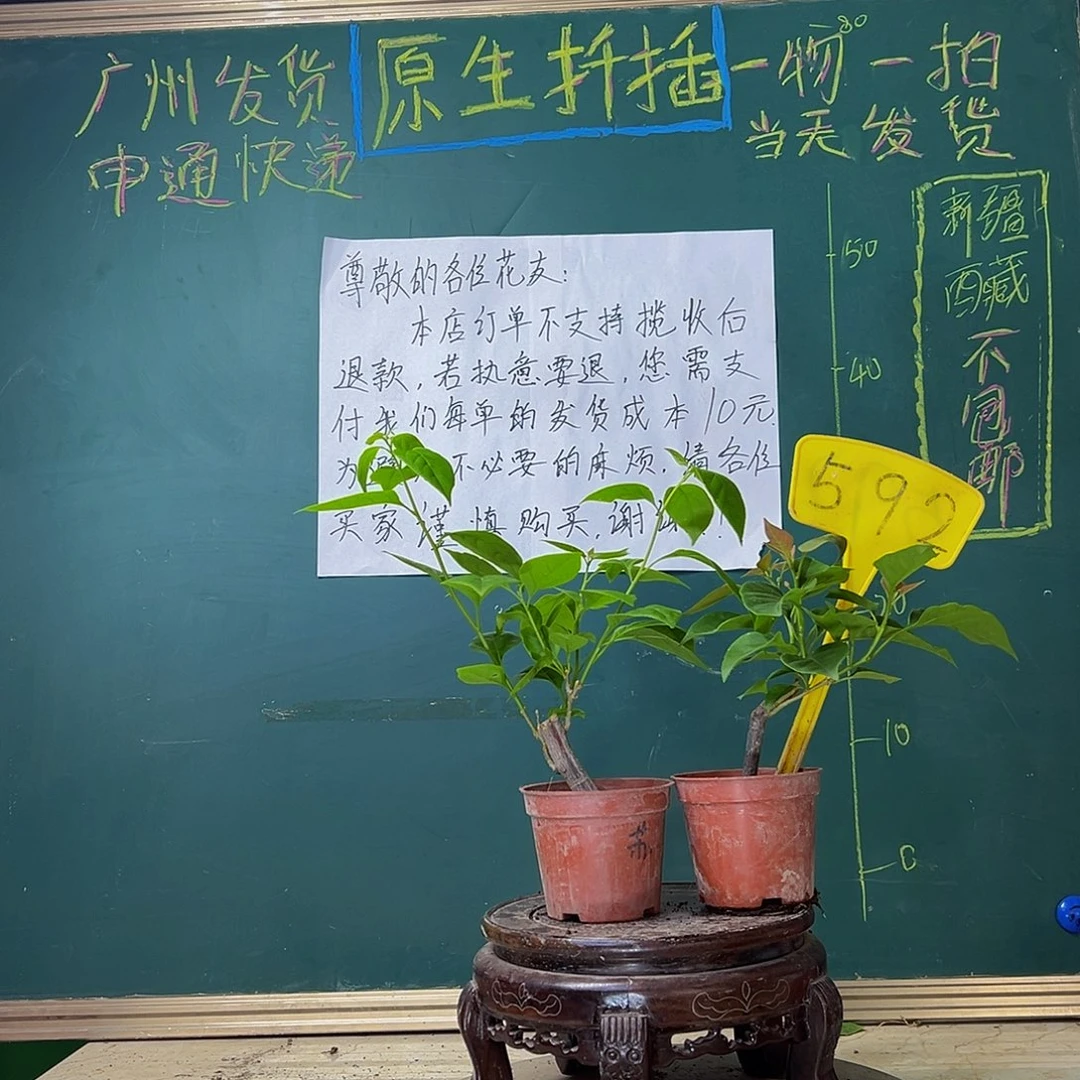 广州发货
申通快递
原生扦插
一物一拍
当天发货
80
50
40
10
0
新疆
西藏
不包邮
尊敬的各位花友:
本店订单不支持揽收后
退款,若执意要退,您需支
付我们每单的发货成本10元.
为 不必要的麻烦.请各位
买家谨慎购买,谢
592
苏